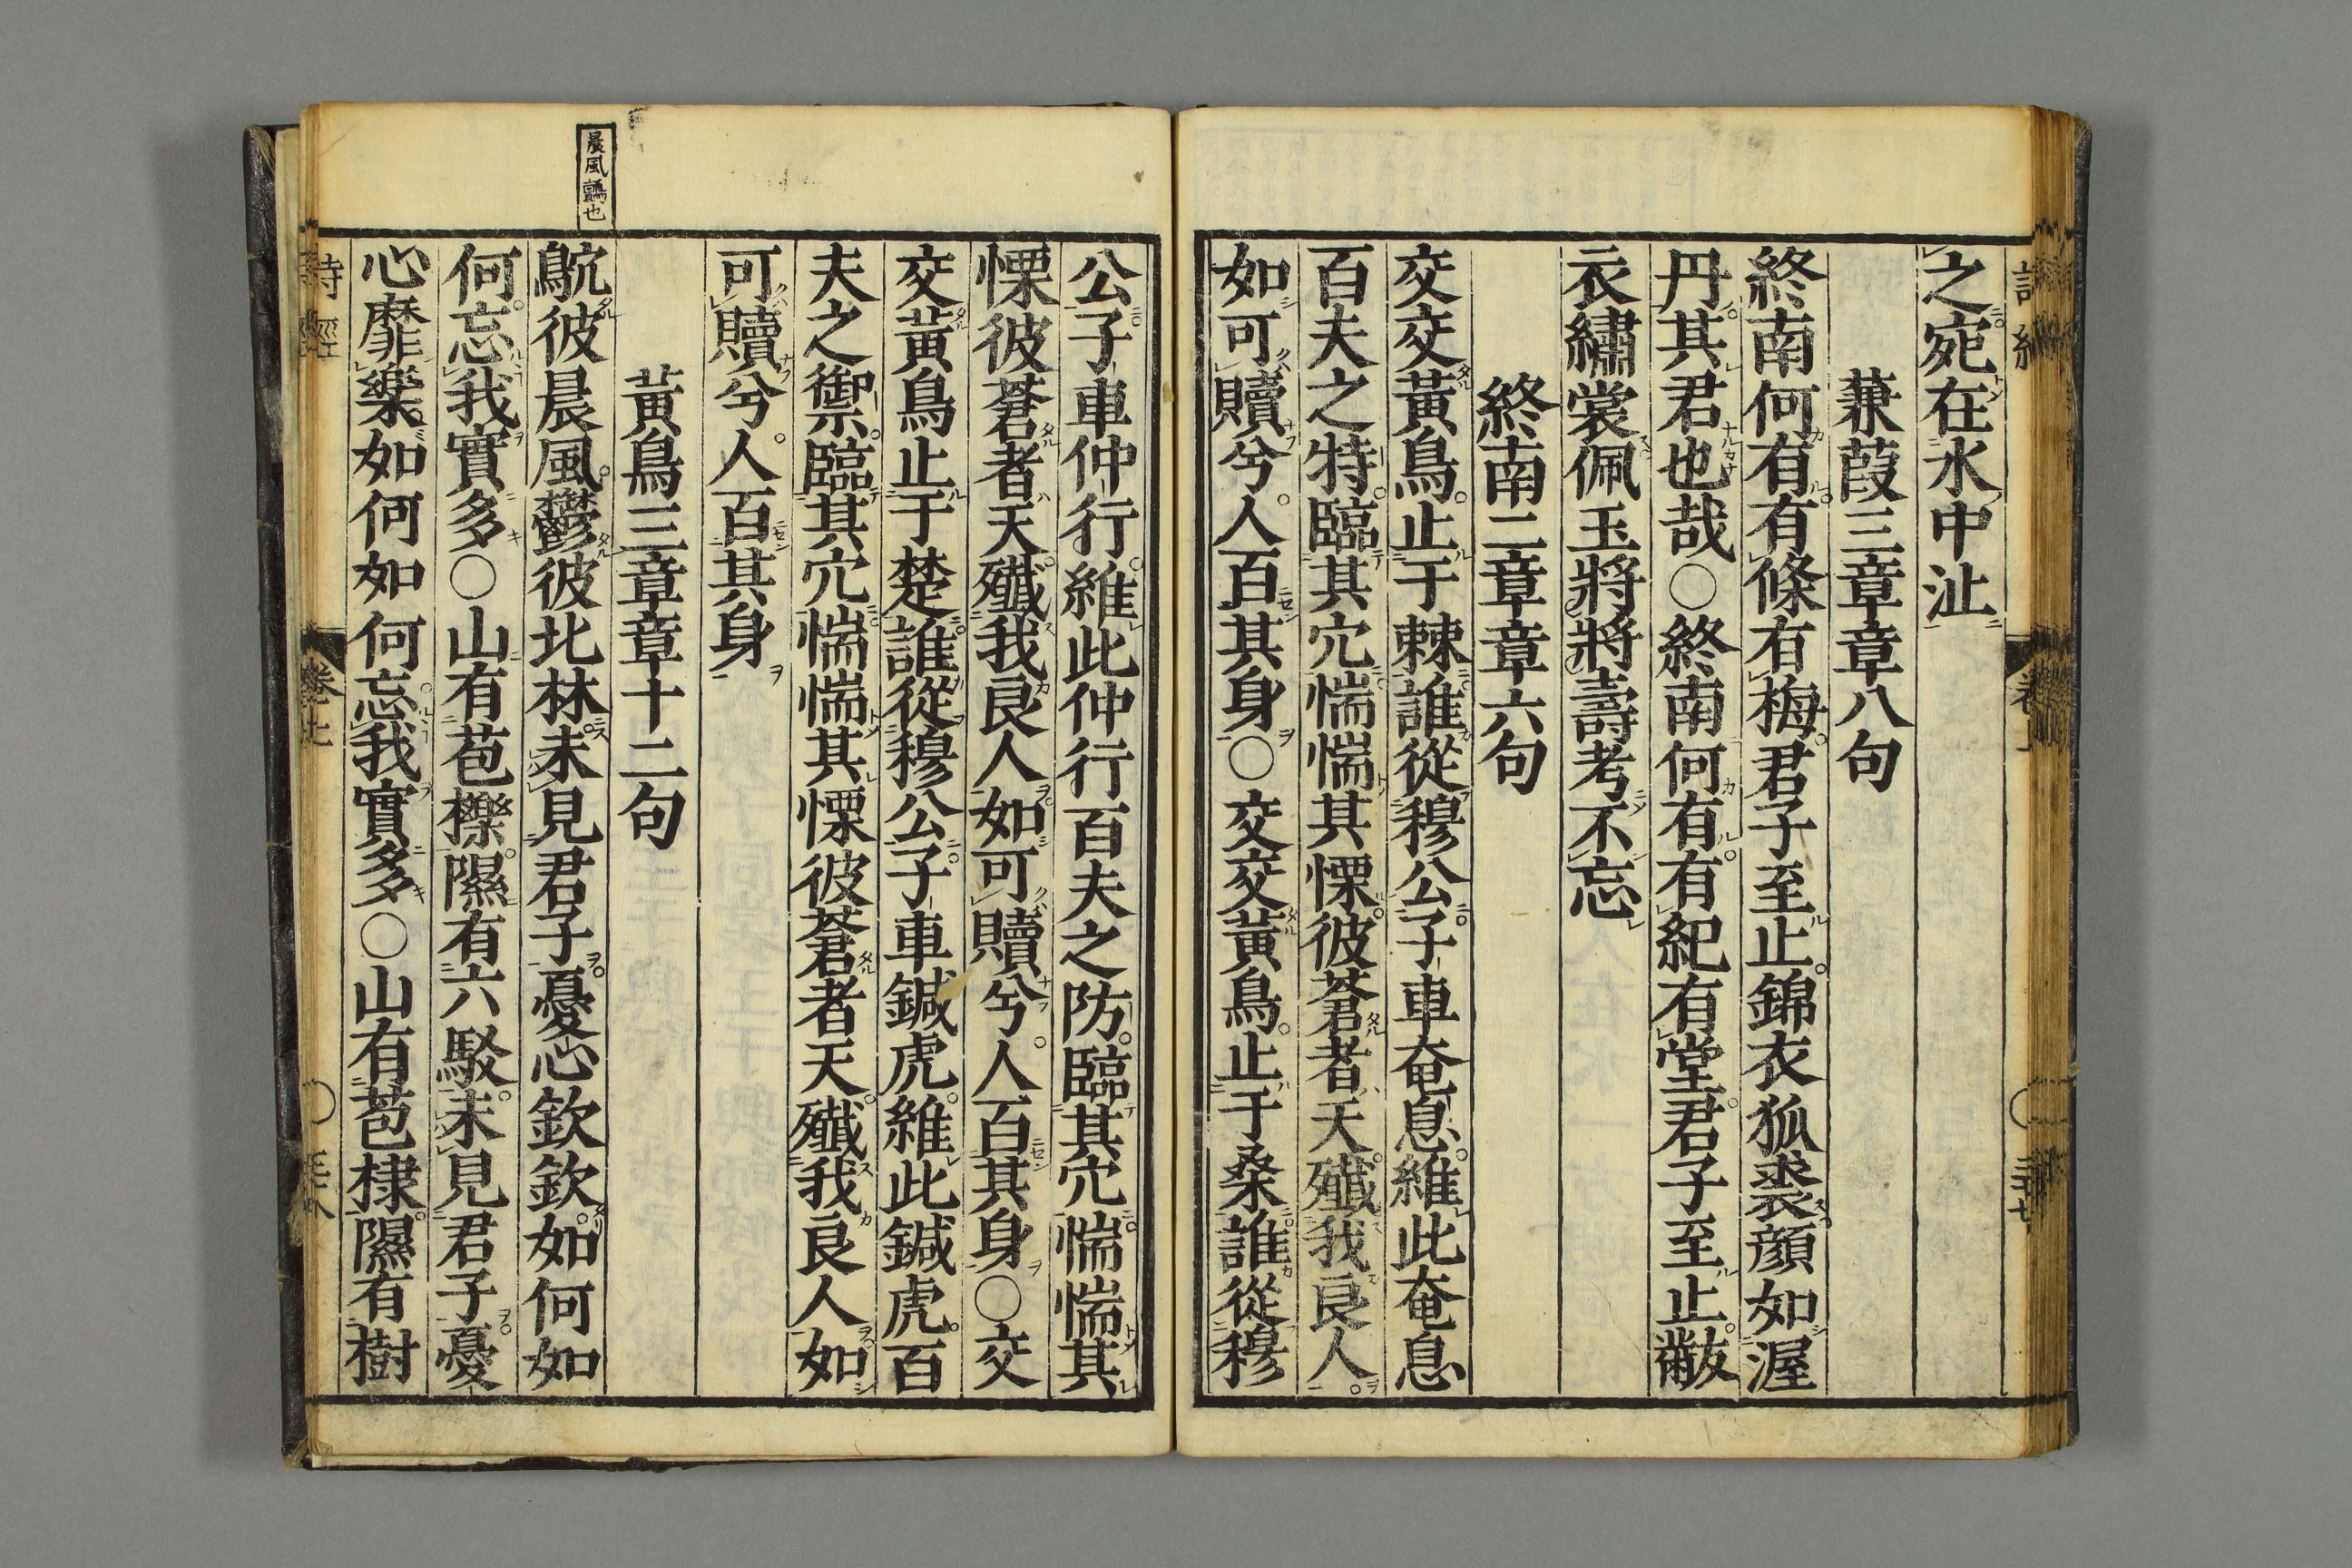 之宛在水中沚
蒹葭三章章八句
終南何有有條有梅君子至止錦衣狐裘顏如渥
丹其君也哉○終南何有有紀有堂君子至止黻
衣繡裳佩玉將將壽考不忘
終南二章章六句
交交黃鳥止于棘誰從穆公子車奄息維此奄息
百夫之特臨其穴惴惴其慄彼蒼者天殲我良人
如可贖兮人百其身○交交黃鳥止于桑誰從穆
公子車仲行維此仲行百夫之防臨其穴惴惴其
慄彼蒼者天殲我良人如可贖兮人百其身○交
交黃鳥止于楚誰從穆公子車鍼虎維此鍼虎百
夫之禦臨其穴惴惴其慄彼蒼者天殲我良人如
可贖兮人百其身
黃鳥三章章十二句
晨風鸇也
鴥彼晨風鬱彼北林未見君子憂心欽欽如何如
何忘我實多○山有苞櫟隰有六駁未見君子憂
心靡樂如何如何忘我實多○山有苞棣隰有樹
詩經